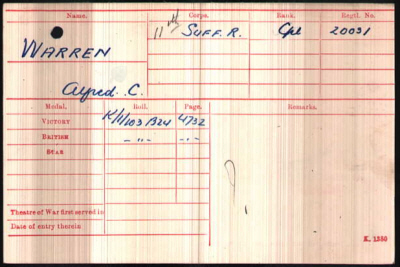 Name. Corps. Rank. Regtl. No.
11th Suff. R. Cpl 20031
WARREN
Alfred. C.
Medal. Roll. Page. Remarks.
VICTORY K/1/103 B24 4732
BRITISH —"— —"—
STAR
Theatre of War first served in
Date of entry therein
K. 1380